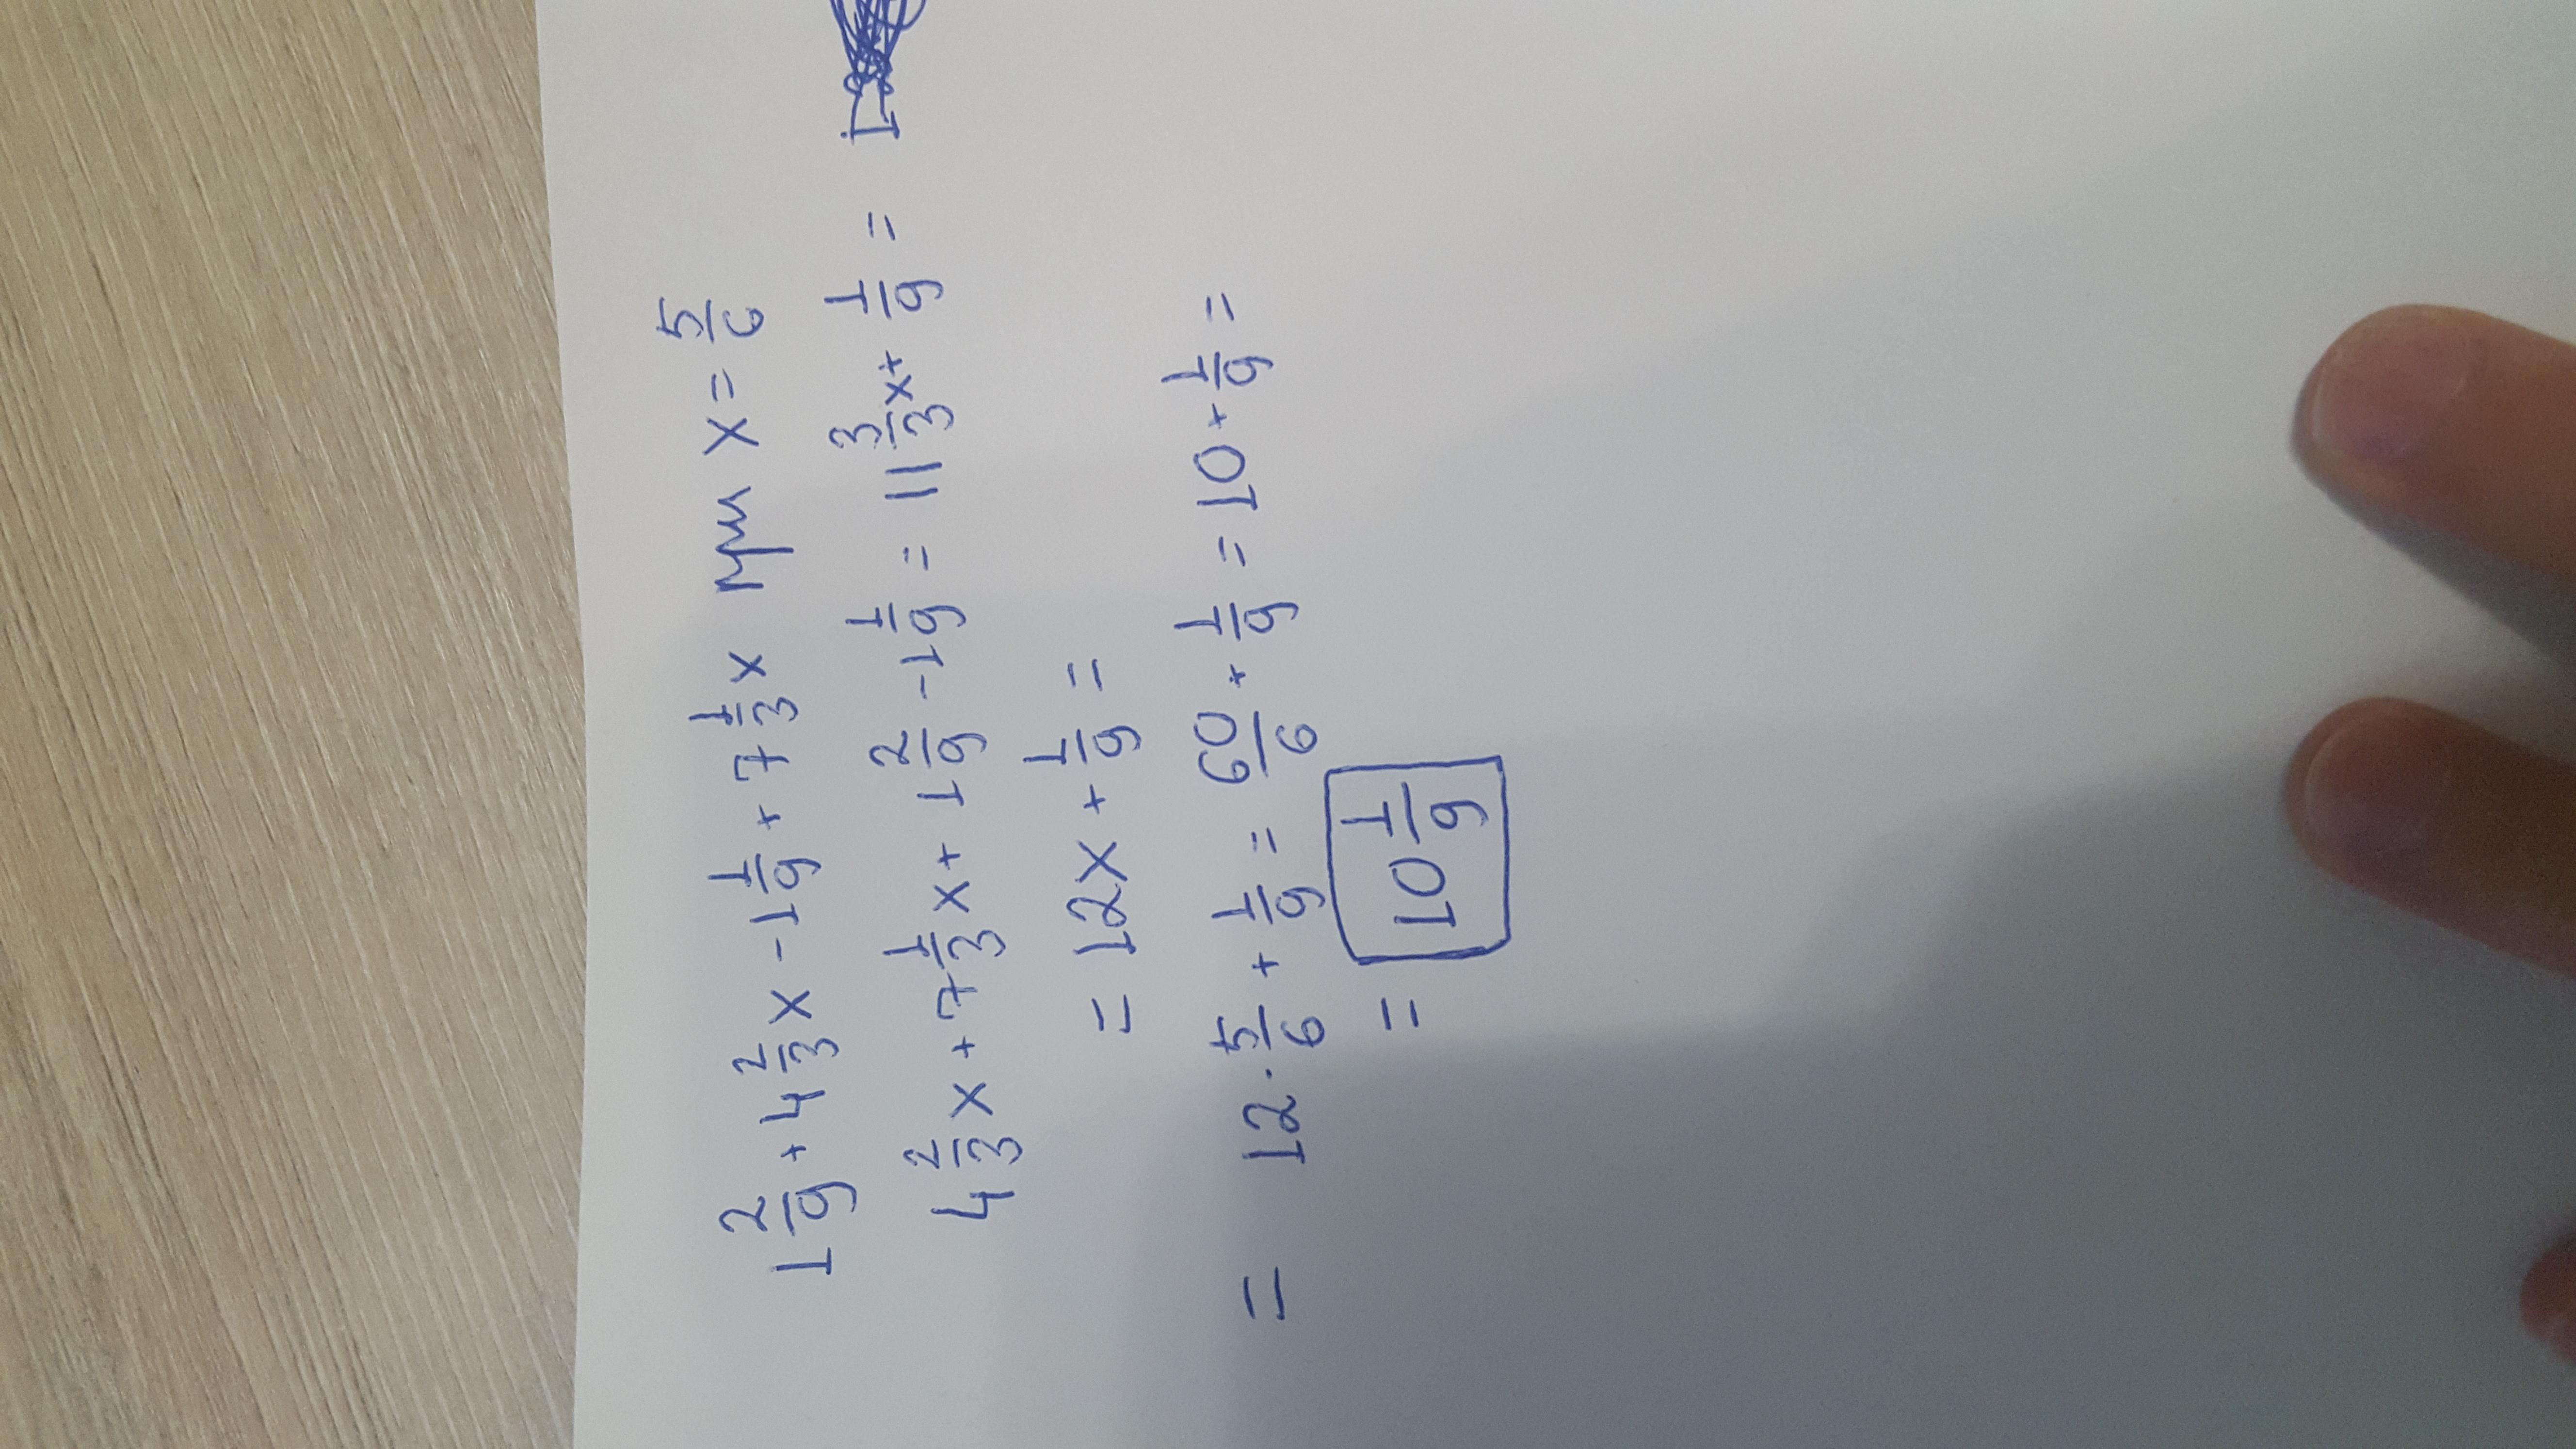 1 2/9 + 4 2/3 x - 1 1/9 + 7 1/3 x при x = 5/6
4 2/3 x + 7 1/3 x + 1 2/9 - 1 1/9 = 11 3/3 x + 1/9 =
= 12x + 1/9 =
= 12 · 5/6 + 1/9 = 60/6 + 1/9 = 10 + 1/9 =
= 10 1/9